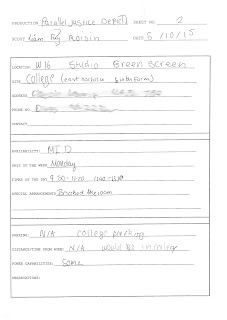 PRODUCTION Parallel Justice DEPICTS SHEET NO. 2
SCOUT Liam Roisin DATE 5/10/15
LOCATION W16 Studio Green Screen
SITE College (east norfolk sixth form)
ADDRESS
PHONE NO.
CONTACT
AVAILABILITY: MID
DAYS OF THE WEEK Monday
TIMES OF THE DAY
SPECIAL ARRANGEMENTS Booked the room
PARKING: N/A college parking
DISTANCE/TIME FROM HOME: N/A would be in college
POWER CAPABILITIES: Some
OBSERVATIONS: